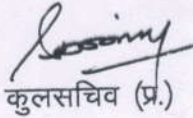 कुलसचिव (प्र.)